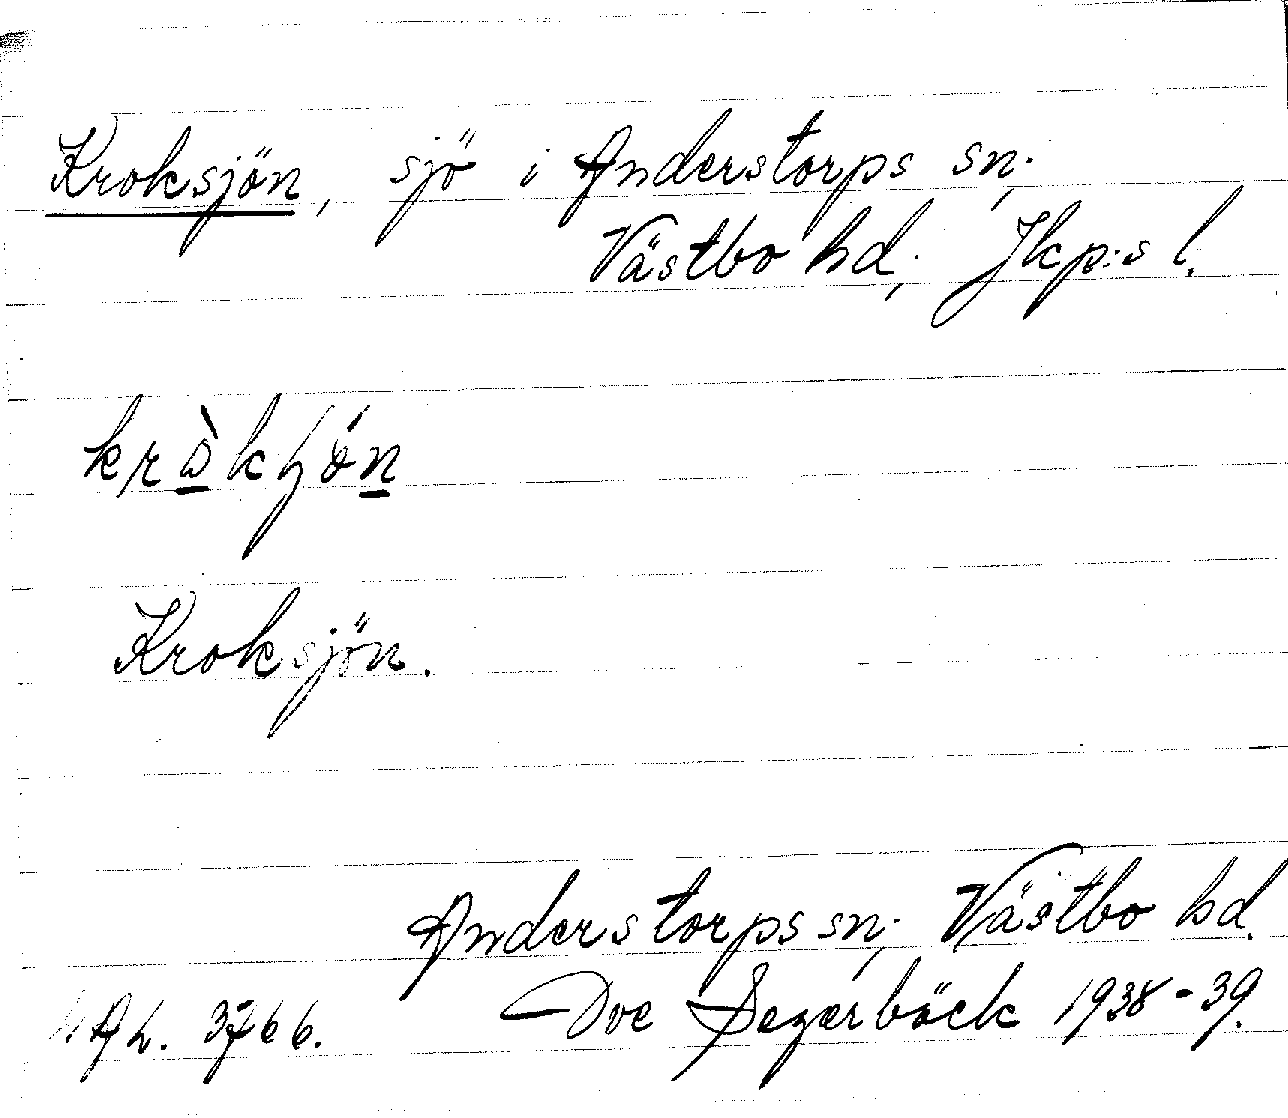 Kroksjön, sjö i Anderstorps sn.,
Västbo hd., Jkp:s l.
Kroksjön.
Anderstorps sn., Västbo hd.
3766. Ove Segerbäck 1938-39.